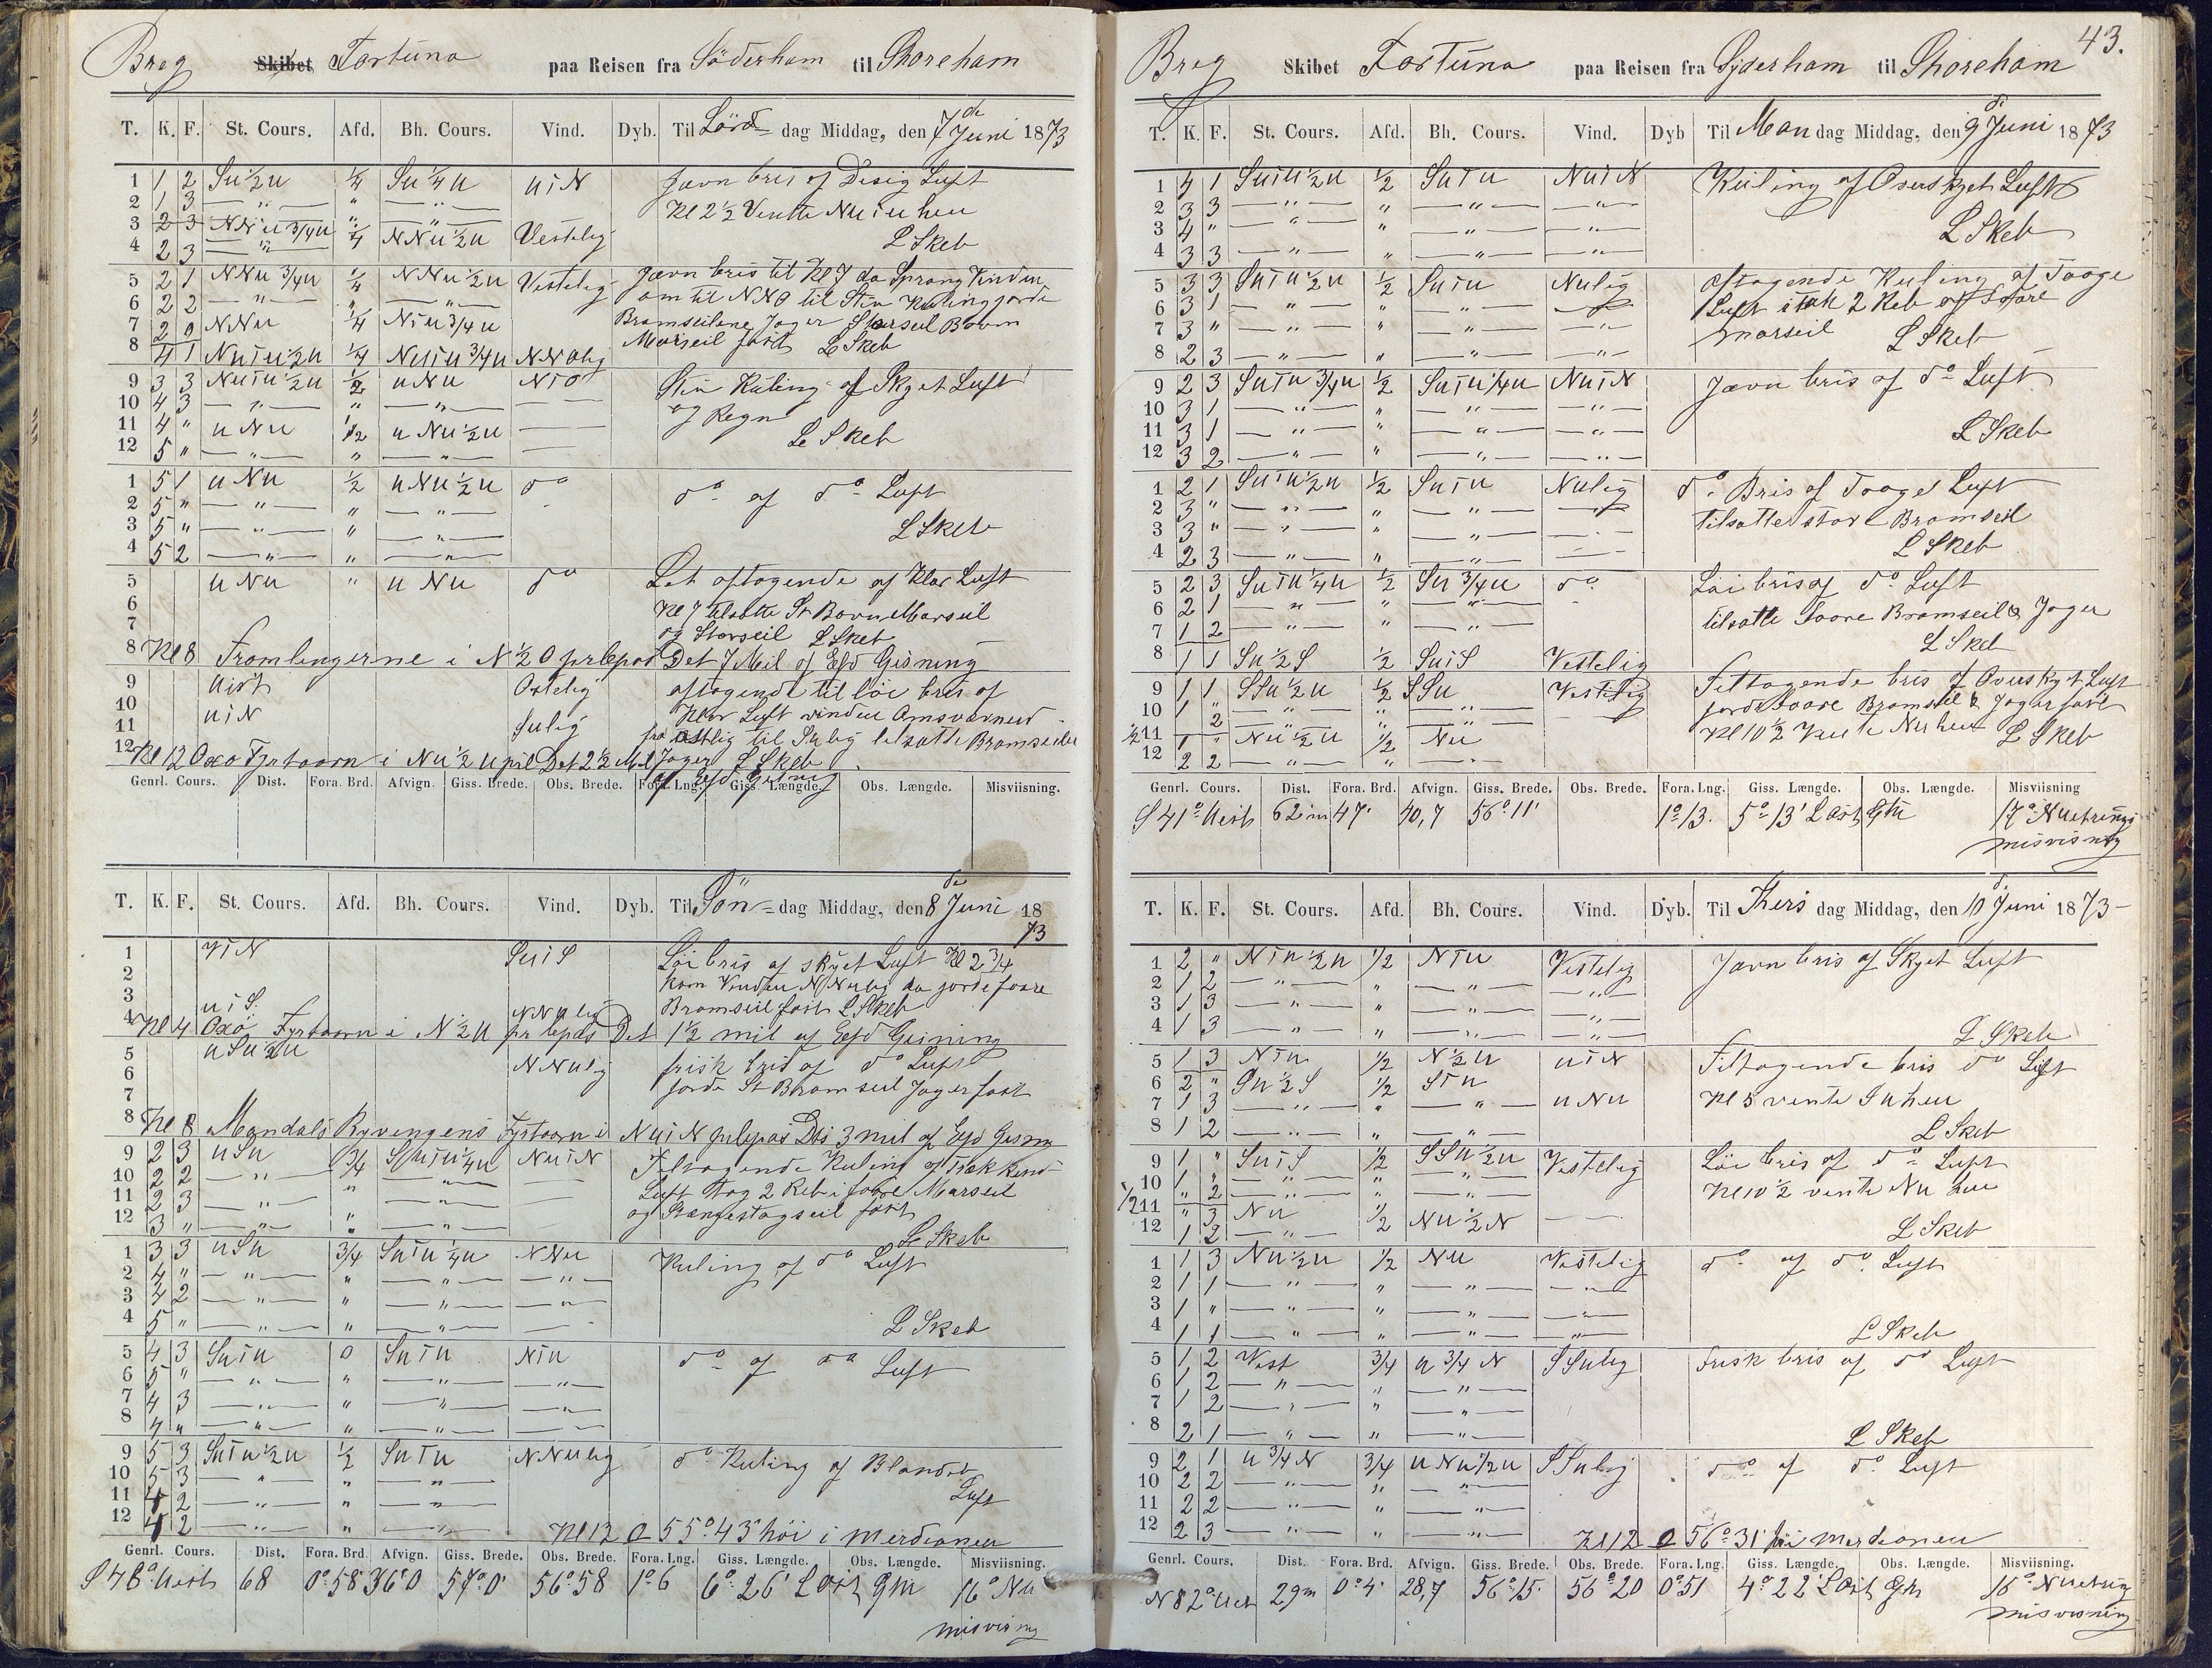 Breg Skibet Fortuna paa Reisen fra Söderham til Shoreham
T. K. F. St. Cours. Afd. Bh. Cours. Vind. Dyb. Til Lörd dag Middag, den 7 de Juni 1873
1 1 2 Su 1/2 u 1/4 Su 1/4 u uiN Jævn bris af Disig Luft
2 1 3 — " — " — " — Kl 2 1/2 Vendte Nuiu hen
3 2 3 NNu 3/4 u 1/4 NNu 1/2 u Vestelig
4 2 3 — " — L Skeb
5 2 1 NNu 3/4 u 1/4 NNu 1/2 u Vestelig Jævn bris til Kl 7 da Sprang Vinden
6 2 2 — " — " — " — om til NNO til Stiv Kuling gjorde
7 2 NNu 1/4 Niu 3/4 u Bramseilene Jager Storseil Bovn
8 4 1 Nuiu 1/2 u 1/4 Nuiu 3/4 u NNOlig Marseil fast L Skeb
9 3 3 Nuiu 1/2 u 1/2 uNu NiO Stiv Kuling af Skyet Luft
10 4 3 — " — " — " — — og Regn
11 4 " uNu 1/2 uNu 1/2 u —
12 5 " — " — " — " — — L Skeb
1 5 1 uNu 1/2 uNu 1/2 u do do af do Luft
2 5 " — " — " — " —
3 5 " — " — " — " — L Skeb
4 5 2 — " — " — " —
5 uNu " uNu do Let aftagende af Klar Luft
6 Kl 7 tilsatte St Bovn Marseil
7 og Storseil L Skeb
8 Kl 8 Framlingerne i N 1/2 O prlepas Det 7 Mil af Esd Gisning
9 uist Ostelig aftagende til löi bris af
10 uiN Klar Luft vinden Omsvarend
11 Sulig fra ostlig til Sulig tilsatte Bramseilu
12 Kl 12 Oxo Fyrtaarn i Nu 1/2 u pil Det 2 1/2 Mil Jager L Skeb
af Esd Gisning
Genrl. Cours. Dist. Fora. Brd. Afvign. Giss. Brede. Obs. Brede. Fora. Lng. Giss. Længde. Obs. Længde. Misviisning.
T. K. F. St. Cours. Afd. Bh. Cours. Vind. Dyb. Til Sön dag Middag, den 8 de Juni 1873
1 ViN SuiS Löi bris af skyet Luft Kl 2 3/4
2 kom Vinden NNulig da gjorde faare
3 uiS. NNulig Bramseil fast L Skeb
4 Kl 4 Oxö Fyrtaarn i N 1/2 u pr lepas Det 1 1/2 mil af Esd Gisning
5 uSu 1/2 u NNulig frisk bris af do Luft
6 gjorde St Bramseil Jager fast
7
8 Kl 8 Mandals Ryvengens Fyrtaarn i NuiN prlepas Dts 3 mil af Esd Gisning
9 2 3 uSu 3/4 Suiu 1/4 u NuiN Tiltagende Kuling af Træk kend
10 2 2 — " — " — " — — Luft tog 2 Reb i faare Marseil
11 2 3 — " — " — " — — og Stangestagseil fast
12 3 " — " — " — " — — L Skeb
1 3 3 uSu 3/4 Suiu 1/4 u NNu Kuling af do Luft
2 4 " — " — " — " — — " —
3 4 2 — " — " — " — — " —
4 5 " — " — " — " — — L Skeb
5 4 3 Suiu 0 Suiu Niu do af do Luft
6 5 " — " — " — " — — " —
7 4 3 — " — " — " — — " —
8 4 " — " — " — " — —
9 5 3 Suiu 1/2 u 1/2 Suiu NNulig do Kuling af Blandet
10 5 3 — " — " — " — Luft
11 4 2 — " — " — " —
12 4 2 — " — " — " — Kl 12 O 55° 43' höi i Merdianen
Genrl. Cours. Dist. Fora. Brd. Afvign. Giss. Brede. Obs. Brede. Fora. Lng. Giss. Længde. Obs. Længde. Misviisning.
S 48° uest 68 0° 58' 36' 0 57° 0' 56° 58 1° 6 6° 26' L ost Gm 16° Nu
misvisning
43.
Breg Skibet Fortuna paa Reisen fra Syderham til Shoreham
T. K. F. St. Cours. Afd. Bh. Cours. Vind. Dyb Til Man dag Middag, den 9 d. Juni 1873
1 4 1 Suiu 1/2 u 1/2 Suiu NuiN Kuling af Overskyet Luft
2 3 3 — " — " — " — — " —
3 4 " — " — " — " — — " — L Skeb
4 3 3 — " — " — " — — " —
5 3 3 Suiu 1/2 u 1/2 Suiu Nulig Aftagende Kuling af Taage
6 3 1 — " — " — " — — " — Luft i tok 2 Reb af faare
7 3 " — " — " — " — — " — marseil L Skeb
8 2 3 — " — " — " — — " —
9 2 3 Suiu 3/4 u 1/2 Suiu 1/4 u NuiN Jævn bris af do Luft
10 3 1 — " — " — " — — " —
11 3 1 — " — " — " — — " — L Skeb
12 3 2 — " — " — " — — " —
1 2 1 Suiu 1/2 u 1/2 Suiu Nulig do Bris af Taaget Luft
2 3 " — " — " — " — — " — tilsatte store Bramseil
3 3 " — " — " — " — — " — L Skeb
4 2 3 — " — " — " — —
5 2 3 Suiu 1/4 u 1/2 Su 3/4 u do. Löi bris af do Luft
6 2 1 — " — " — " — tilsatte Faare Bramseil & Jager
7 1 2 — " — " — " — L Skeb
8 1 1 Su 1/2 S 1/2 SuiS Vestelig
9 1 1 SSu 1/2 u 1/2 SSu Vestelig Tiltagende bris af Overskyet Luft
10 1 2 — " — " — " — — gjorde Faare Bramseil & Jager fast
1/2 11 1 " Nu 1/2 u 1/2 Nu Kl 10 1/2 Vente Nu hen L Skeb
12 2 2 — " — " — " —
Genrl. Cours. Dist. Fora. Brd. Afvign. Giss. Brede. Obs. Brede. Fora. Lng. Giss. Længde. Obs. Længde. Misviisning
S 41° uest 62 m 47' 40,7 56° 11' 1° 13. 5° 13' L ost Gm 17° Nuetrings
misvisning
T. K. F. St. Cours. Afd. Bh. Cours. Vind. Dyb. Til Thers dag Middag, den 10 d. Juni 1873
1 2 " Niu 1/2 u 1/2 Niu Vestelig Jævn bris af Skyet Luft
2 1 2 — " — " — " — — " —
3 1 3 — " — " — " — — " —
4 1 3 — " — " — " — — " — L Skeb
5 1 3 Niu 1/2 N 1/2 u uiN Tiltagende bris do Luft
6 2 " Su 1/2 S 1/2 Siu
7 1 3 — " — " — " — uNu Kl 5 vente Su hen
8 1 2 — " — " — " — L Skeb
9 1 " SuiS 1/2 SSu 1/2 u Vestelig Löi bris af do Luft
10 1 " — " — " — " — Kl 10 1/2 vente Nu hen
" 2 — " — " — " —
1/2 11 " 3 Nu 1/2 Nu 1/2 N —
12 1 2 — " — L Skeb
1 1 3 Nu 1/2 u 1/2 Nu Vestelig do af do Luft
2 1 1 — " — " — " — — " —
3 1 " — " — " — " — — " —
4 1 1 — " — " — " — — " — L Skeb
5 1 2 Vest 3/4 u 3/4 N SSulig Frisk bris af do Luft
6 1 2 — " — " — " —
7 1 2 — " — " — " —
8 2 1 — " — " — " — L Skeb
9 2 1 u 3/4 N 3/4 uNu 1/2 u SSulig do af do Luft
10 2 2 — " — " — " —
11 2 2 — " — " — " —
12 2 3 — " — " — " — Kl 12 O 56° 31' höi merdianen
Genrl. Cours. Dist. Fora. Brd. Afvign. Giss. Brede. Obs. Brede. Fora. Lng. Giss. Længde. Obs. Længde. Misviisning.
N 82° uest 29 m 0° 4' 28,7 56° 15' 56° 20 0° 51 4° 22' L ost Gm 16° Nuetring
misvisning